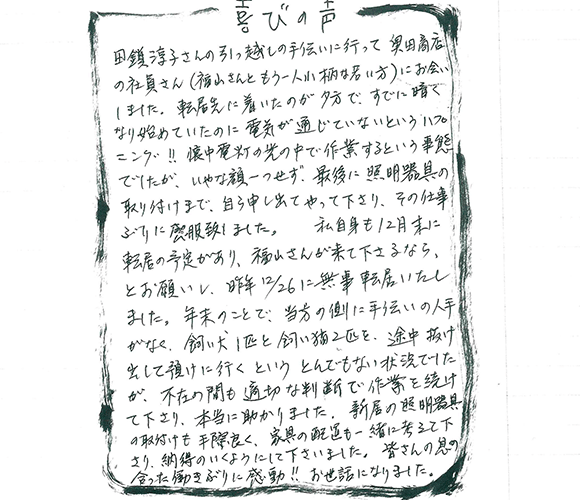 喜びの声
田鎖淳子さんの引っ越しの手伝いに行って 奥田商店
の社員さん(福山さんともう一人小柄な若い方)にお会い
しました。転居先に着いたのが夕方で、すでに暗く
なり始めていたのに電気が通じていないというハプ
ニング!! 懐中電灯の光の中で作業するという事態
でしたが、いやな顔一つせず、最後に照明器具の
取り付けまで、自ら申し出てやって下さり、その仕事
ぶりに感服致しました。 私自身も12月末に
転居の予定があり、福山さんが来て下さるなら、
とお願いし、昨年12/26に無事転居いたし
ました。年末のことで、当方の側に手伝いの人手
がなく、飼い犬1匹と飼い猫2匹を、途中抜け
出して預けに行くという とんでもない状況でした
が、不在の間も適切な判断で作業を続け
て下さり、本当に助かりました。新居の照明器具
の取付けも手際良く、家具の配置も一緒に考えて下
さり、納得のいくようにして下さいました。皆さんの息の
合った働きぶりに感動!! お世話になりました。